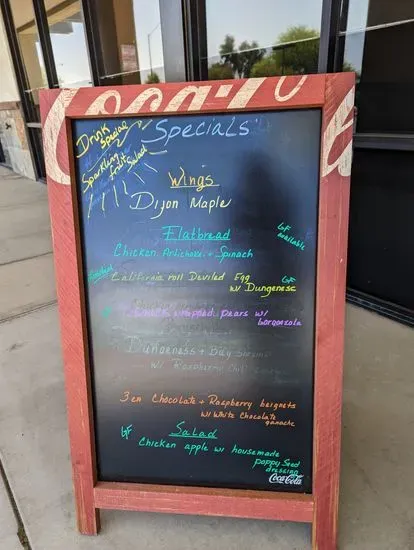 Coca-Cola
Drink Special
Sparkling
Fruit Salad
Specials
Wings
Dijon Maple
Flatbread
GF
available
Chicken Artichoke + Spinach
California roll Deviled Egg
GF
w/ Dungenese
wrapped pears w/
Gorgonzola
Dungeness + Bay Shrimp
w/ Raspberry Chili
3 en Chocolate + Raspberry beignets
w/ White Chocolate
ganache
GF
Salad
Chicken apple w/ housemade
poppy Seed
dressing
Coca-Cola